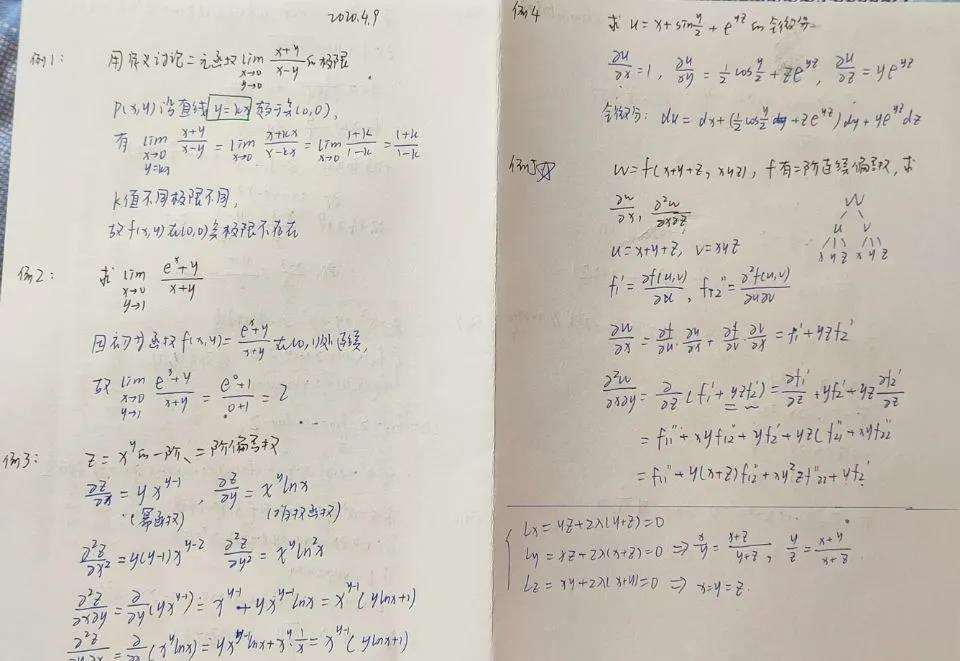 2020.4.9
例1: 用定义讨论二元函数 lim_{x→0, y→0} (x+y)/(x-y) 的极限.
P(x,y)沿直线 y=kx 趋于点(0,0),
有 lim_{x→0, y=kx} (x+y)/(x-y) = lim_{x→0} (x+kx)/(x-kx) = lim_{x→0} (1+k)/(1-k) = (1+k)/(1-k)
k值不同极限不同,
故f(x,y)在(0,0)处极限不存在
例2: 求 lim_{x→0, y→1} (e^x+y)/(x+y)
因初等函数f(x,y)= (e^x+y)/(x+y) 在(0,1)处连续,
故 lim_{x→0, y→1} (e^x+y)/(x+y) = (e^0+1)/(0+1) = 2
例3: z=x^y的一阶、二阶偏导数
∂z/∂x = yx^{y-1}, ∂z/∂y = x^y lnx
(幂函数) (指数函数)
∂²z/∂x² = y(y-1)x^{y-2} ∂²z/∂y² = x^y ln²x
∂²z/∂x∂y = ∂/∂y (yx^{y-1}) = x^{y-1} + yx^{y-1}lnx = x^{y-1}(ylnx+1)
∂²z/∂y∂x = ∂/∂x (x^y lnx) = yx^{y-1}lnx + x^y·1/x = x^{y-1}(ylnx+1)
例4 求 u=x+sin y/2 + e^{yz} 的全微分
∂u/∂x = 1, ∂u/∂y = 1/2 cos y/2 + ze^{yz}, ∂u/∂z = ye^{yz}
全微分: du = dx + (1/2 cos y/2 + ze^{yz})dy + ye^{yz}dz
例5☆ w=f(x+y+z, xyz), f有二阶连续偏导数, 求
∂w/∂x, ∂²w/∂x∂z
w
u=x+y+z, v=xyz
u v
x y z x y z
f₁' = ∂f(u,v)/∂u, f₁₂'' = ∂²f(u,v)/∂u∂v
∂w/∂x = ∂f/∂u·∂u/∂x + ∂f/∂v·∂v/∂x = f₁' + yzf₂'
∂²w/∂x∂y = ∂/∂z (f₁' + yzf₂') = ∂f₁'/∂z + yf₂' + yz ∂f₂'/∂z
= f₁₁'' + xyf₁₂'' + yf₂' + yz(f₂₁'' + xyf₂₂'')
= f₁₁'' + y(x+z)f₁₂'' + xy²zf₂₂'' + yf₂'
Lx = yz+2λ(y+z)=0
Ly = xz+2λ(x+z)=0 ⇒ x/y = (x+z)/(y+z), y/z = (x+y)/(x+z)
Lz = xy+2λ(x+y)=0 ⇒ x=y=z.